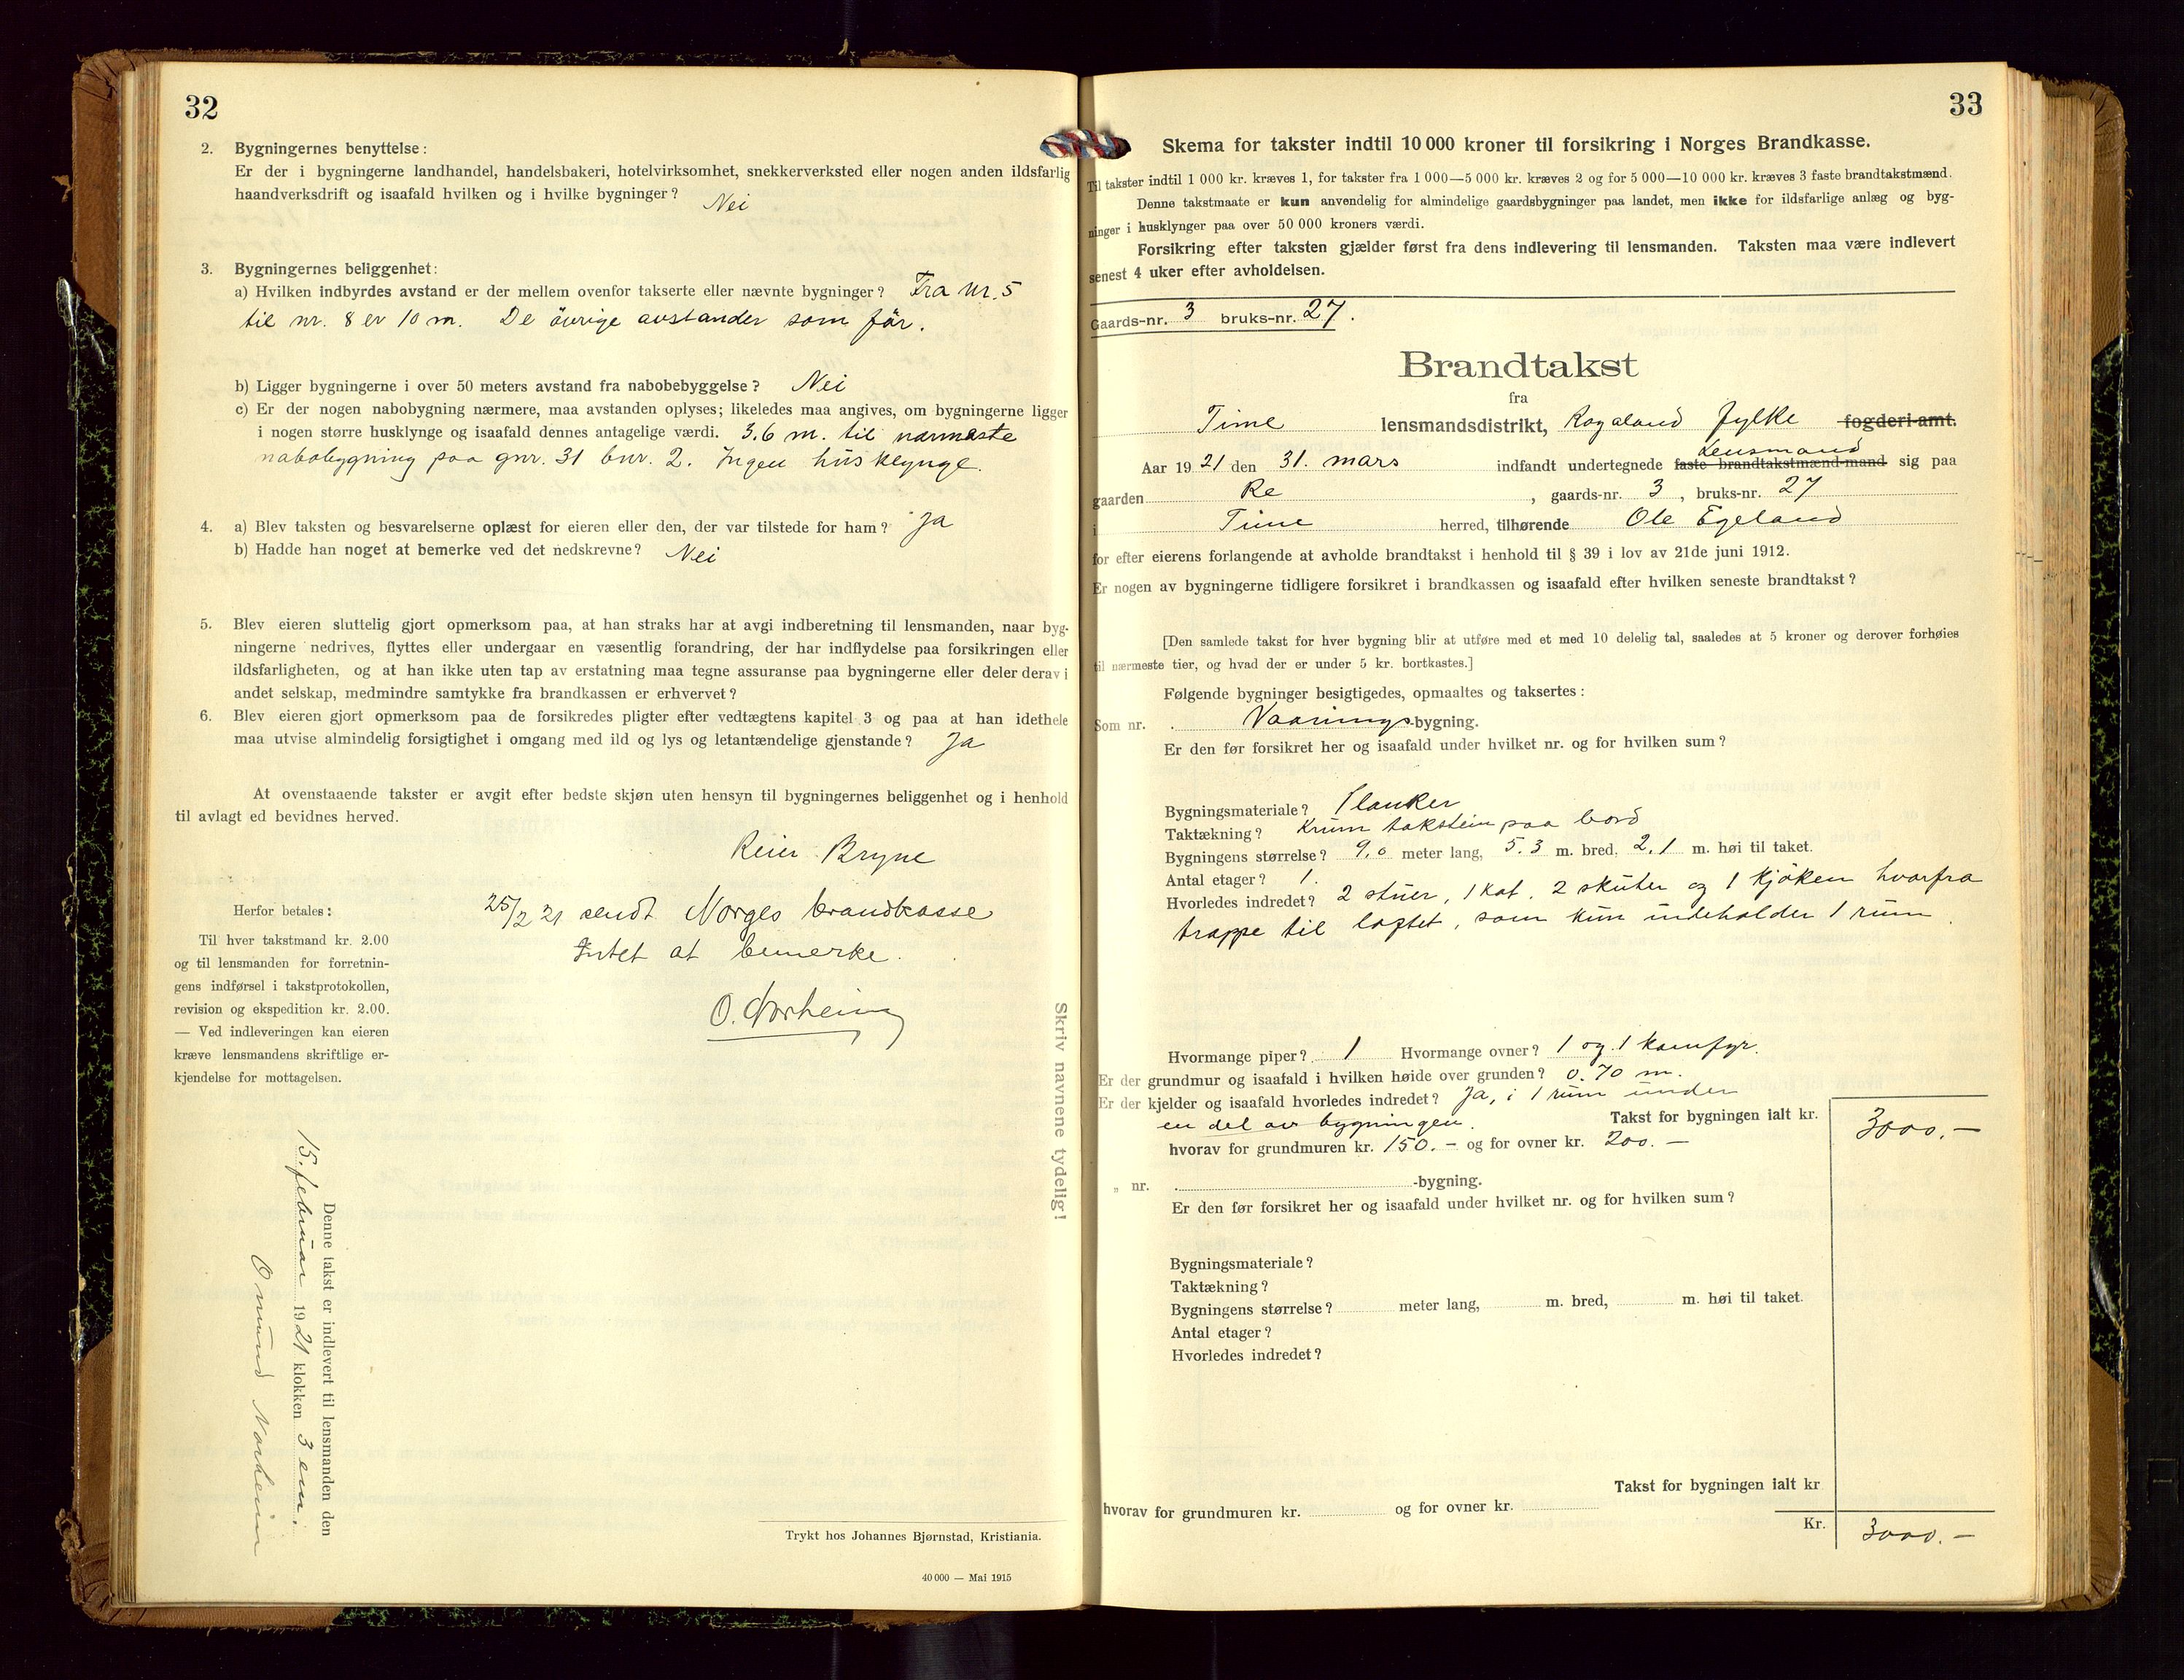 32
2. Bygningernes benyttelse:
Er der i bygningerne landhandel, handelsbakeri, hotelvirksomhet, snekkerverksted eller nogen anden ildsfarlig
haandverksdrift og isaafald hvilken og i hvilke bygninger? Nei
3. Bygningernes beliggenhet:
a) Hvilken indbyrdes avstand er der mellem ovenfor takserte eller nævnte bygninger? Fra nr. 5
til nr. 8 er 10 m. De övrige avstander som för.
b) Ligger bygningerne i over 50 meters avstand fra nabobebyggelse? Nei
c) Er der nogen nabobygning nærmere, maa avstanden oplyses; likeledes maa angives, om bygningerne ligger
i nogen større husklynge og isaafald dennes antagelige værdi. 3.6 m. til nærmeste
nabobygning paa gnr. 31 bnr. 2. Ingen husklynge.
4. a) Blev taksten og besvarelserne oplæst for eieren eller den, der var tilstede for ham? Ja
b) Hadde han noget at bemerke ved det nedskrevne? Nei
5. Blev eieren sluttelig gjort opmerksom paa, at han straks har at avgi indberetning til lensmanden, naar byg-
ningerne nedrives, flyttes eller undergaar en væsentlig forandring, der har indflydelse paa forsikringen eller
ildsfarligheten, og at han ikke uten tap av erstatning maa tegne assuranse paa bygningerne eller deler derav i
andet selskap, medmindre samtykke fra brandkassen er erhvervet?
6. Blev eieren gjort opmerksom paa de forsikredes pligter efter vedtægtens kapitel 3 og paa at han idethele
maa utvise almindelig forsigtighet i omgang med ild og lys og letantændelige gjenstande? Ja
At ovenstaaende takster er avgit efter bedste skjøn uten hensyn til bygningernes beliggenhet og i henhold
til avlagt ed bevidnes herved.
Reier Bryne
25/2 21 sendt Norges brandkasse
Intet at bemerke.
O. Norheim
Herfor betales:
Til hver takstmand kr. 2.00
og til lensmanden for forretnin-
gens indførsel i takstprotokollen,
revision og ekspedition kr. 2.00.
— Ved indleveringen kan eieren
kræve lensmandens skriftlige er-
kjendelse for mottagelsen.
Skriv navnene tydelig!
Denne takst er indlevert til lensmanden den
15. februar 1921 klokken 3 em.
Omund Norheim
Trykt hos Johannes Bjørnstad, Kristiania.
40 000 — Mai 1915
33
Skema for takster indtil 10 000 kroner til forsikring i Norges Brandkasse.
Til takster indtil 1 000 kr. kræves 1, for takster fra 1 000—5 000 kr. kræves 2 og for 5 000—10 000 kr. kræves 3 faste brandtakstmænd.
Denne takstmaate er kun anvendelig for almindelige gaardsbygninger paa landet, men ikke for ildsfarlige anlæg og byg-
ninger i husklynger paa over 50 000 kroners værdi.
Forsikring efter taksten gjælder først fra dens indlevering til lensmanden. Taksten maa være indlevert
senest 4 uker efter avholdelsen.
Gaards-nr. 3 bruks-nr. 27.
Brandtakst
fra
Time lensmandsdistrikt, Rogaland fylke fogderi-amt.
Lensmand
Aar 1921 den 31. mars indfandt undertegnede faste brandtakstmænd-mand sig paa
gaarden Re, gaards-nr. 3, bruks-nr. 27
i Time herred, tilhørende Ole Egeland
for efter eierens forlangende at avholde brandtakst i henhold til § 39 i lov av 21de juni 1912.
Er nogen av bygningerne tidligere forsikret i brandkassen og isaafald efter hvilken seneste brandtakst?
[Den samlede takst for hver bygning blir at utføre med et med 10 delelig tal, saaledes at 5 kroner og derover forhøies
til nærmeste tier, og hvad der er under 5 kr. bortkastes.]
Følgende bygninger besigtigedes, opmaaltes og taksertes:
Som nr. . Vaanings-bygning.
Er den før forsikret her og isaafald under hvilket nr. og for hvilken sum?
Bygningsmateriale? Planker
Taktækning? Krum takstein paa bord
Bygningens størrelse? 9.0 meter lang, 5.3 m. bred, 2.1 m. høi til taket.
Antal etager? 1.
Hvorledes indredet? 2 stuer, 1 kot, 2 skuter og 1 kjöken hvorfra
trappe til loftet, som kun indeholder 1 rum.
Hvormange piper? 1 Hvormange ovner? 1 og 1 komfyr.
Er der grundmur og isaafald i hvilken høide over grunden? 0.70 m.
Er der kjelder og isaafald hvorledes indredet? Ja, i 1 rum under
en del av bygningen. Takst for bygningen ialt kr. 3000.—
hvorav for grundmuren kr. 150.— og for ovner kr. 200.—
„ nr. . -bygning.
Er den før forsikret her og isaafald under hvilket nr. og for hvilken sum?
Bygningsmateriale?
Taktækning?
Bygningens størrelse? meter lang, m. bred, m. høi til taket.
Antal etager?
Hvorledes indredet?
Takst for bygningen ialt kr
hvorav for grundmuren kr. og for ovner kr.
Kr. 3000.—